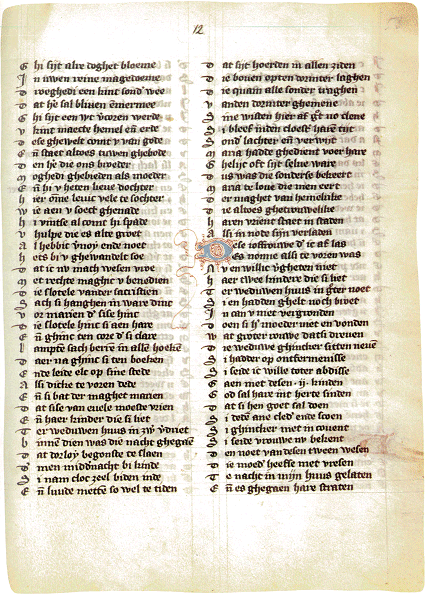 12
G hi sijt alre doghet bloeme
I n uwen reine magedoeme
D roeghedi een kint sond' wee
D at he sal bliuen ēmermee
G hi sijt een vt v'coren werde
V kint maecte hemel eñ erde
D ese ghewelt comt v van gode
E ñ staet altoes tuwen ghebode
D en he die ons broeder
M oghedi ghebieden als moeder
E ñ hi v heten lieue dochter
H ier ōme leuic vele te sochter
W ie aen v soect ghenade
H i vintse al comt hi spade
H ulpe die es alte groet
A l hebbic v'noy ende noet
H ets bi v ghewandelt soe
D at ic nv mach wesen vroe
M et rechte maghic v benedien
D ie slotele vander sacristien
S ach si hanghen in ware dinc
V or marien d' sise hinc
D ie slotele hinc si aen hare
E ñ ghinc ten core d' si clare
L ampte sach berrē in allē hoekē
D aer na ghinc si ten boeken
E nde leide elc op sine stede
A lsi dicke te voren dede
E ñ si bat der maghet marien
D at sise van euele moete vrien
E ñ haer kinder die si liet
T er weduwen huus in zw' v'driet
B innē dien was die nacht ghegaē
D at dorloy begonste te slaen
D men middnacht bi kinde
S i nam cloc zeel biden inde
E ñ luude mettē so wel te tiden
D at sijt hoerden in allen ziden
D ie bouen opten dormter laghen
D ie quam alle sonder traghen
V anden dormter ghemene
S ine wisten hier af gr̄ no clene
S i bleef inden cloest' hart tijt
S ond' lachter eñ verwijt
M aria hadde ghedient voer hare
G helijc oft sijt selue ware
D us was die sonderse bekeert
M aria te loue die men eert
D er maghet van hemelrike
D ie altoes ghetrouwelike
H aren vrient staet in staden
A lsi in node sijn verladen
D ese ioffrouwe d' ic af las
E s nonne alsi te voren was
N v en willic v'gheten niet
H aer twee kindere die si liet
T er weduwen huus in gr̄ter noet
S i en hadden ghelt noch broet
I n can v niet vergronden
D oen si h' moeder niet en vonden
W at groter rouwe datsi dreuen
D ie weduwe ghincker sitten neuē
S i hadder op ontfermenisse
S i seide ic wille toter abdisse
G aen met desen .ij. kinden
G od sal hare int herte sinden
D at si hen goet sal doen
S i dede ane cleder ende scoen
S i ghincker met in couent
S i seide vrouwe nv bekent
D en noet van desen tween wesen
D ie moed' heefse met vresen
T e nacht in mijn huus gelaten
E ñ es ghegaen hare straten